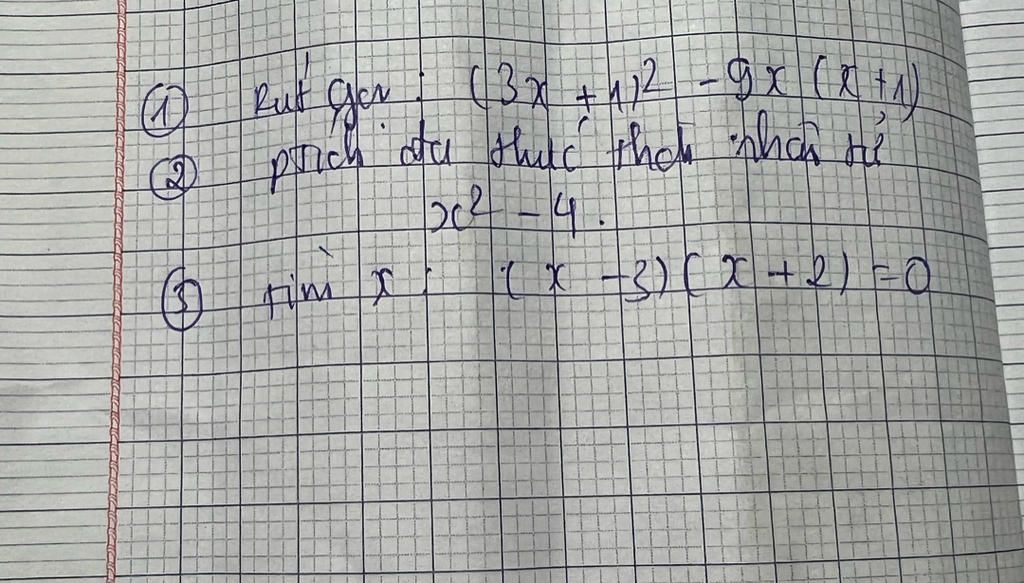 ① Rút gọn: (3x + 1)² - 9x (x + 1)
② ptich đa thức thàn nhân tử
x² - 4.
③ tìm x: (x - 3) (x + 2) = 0